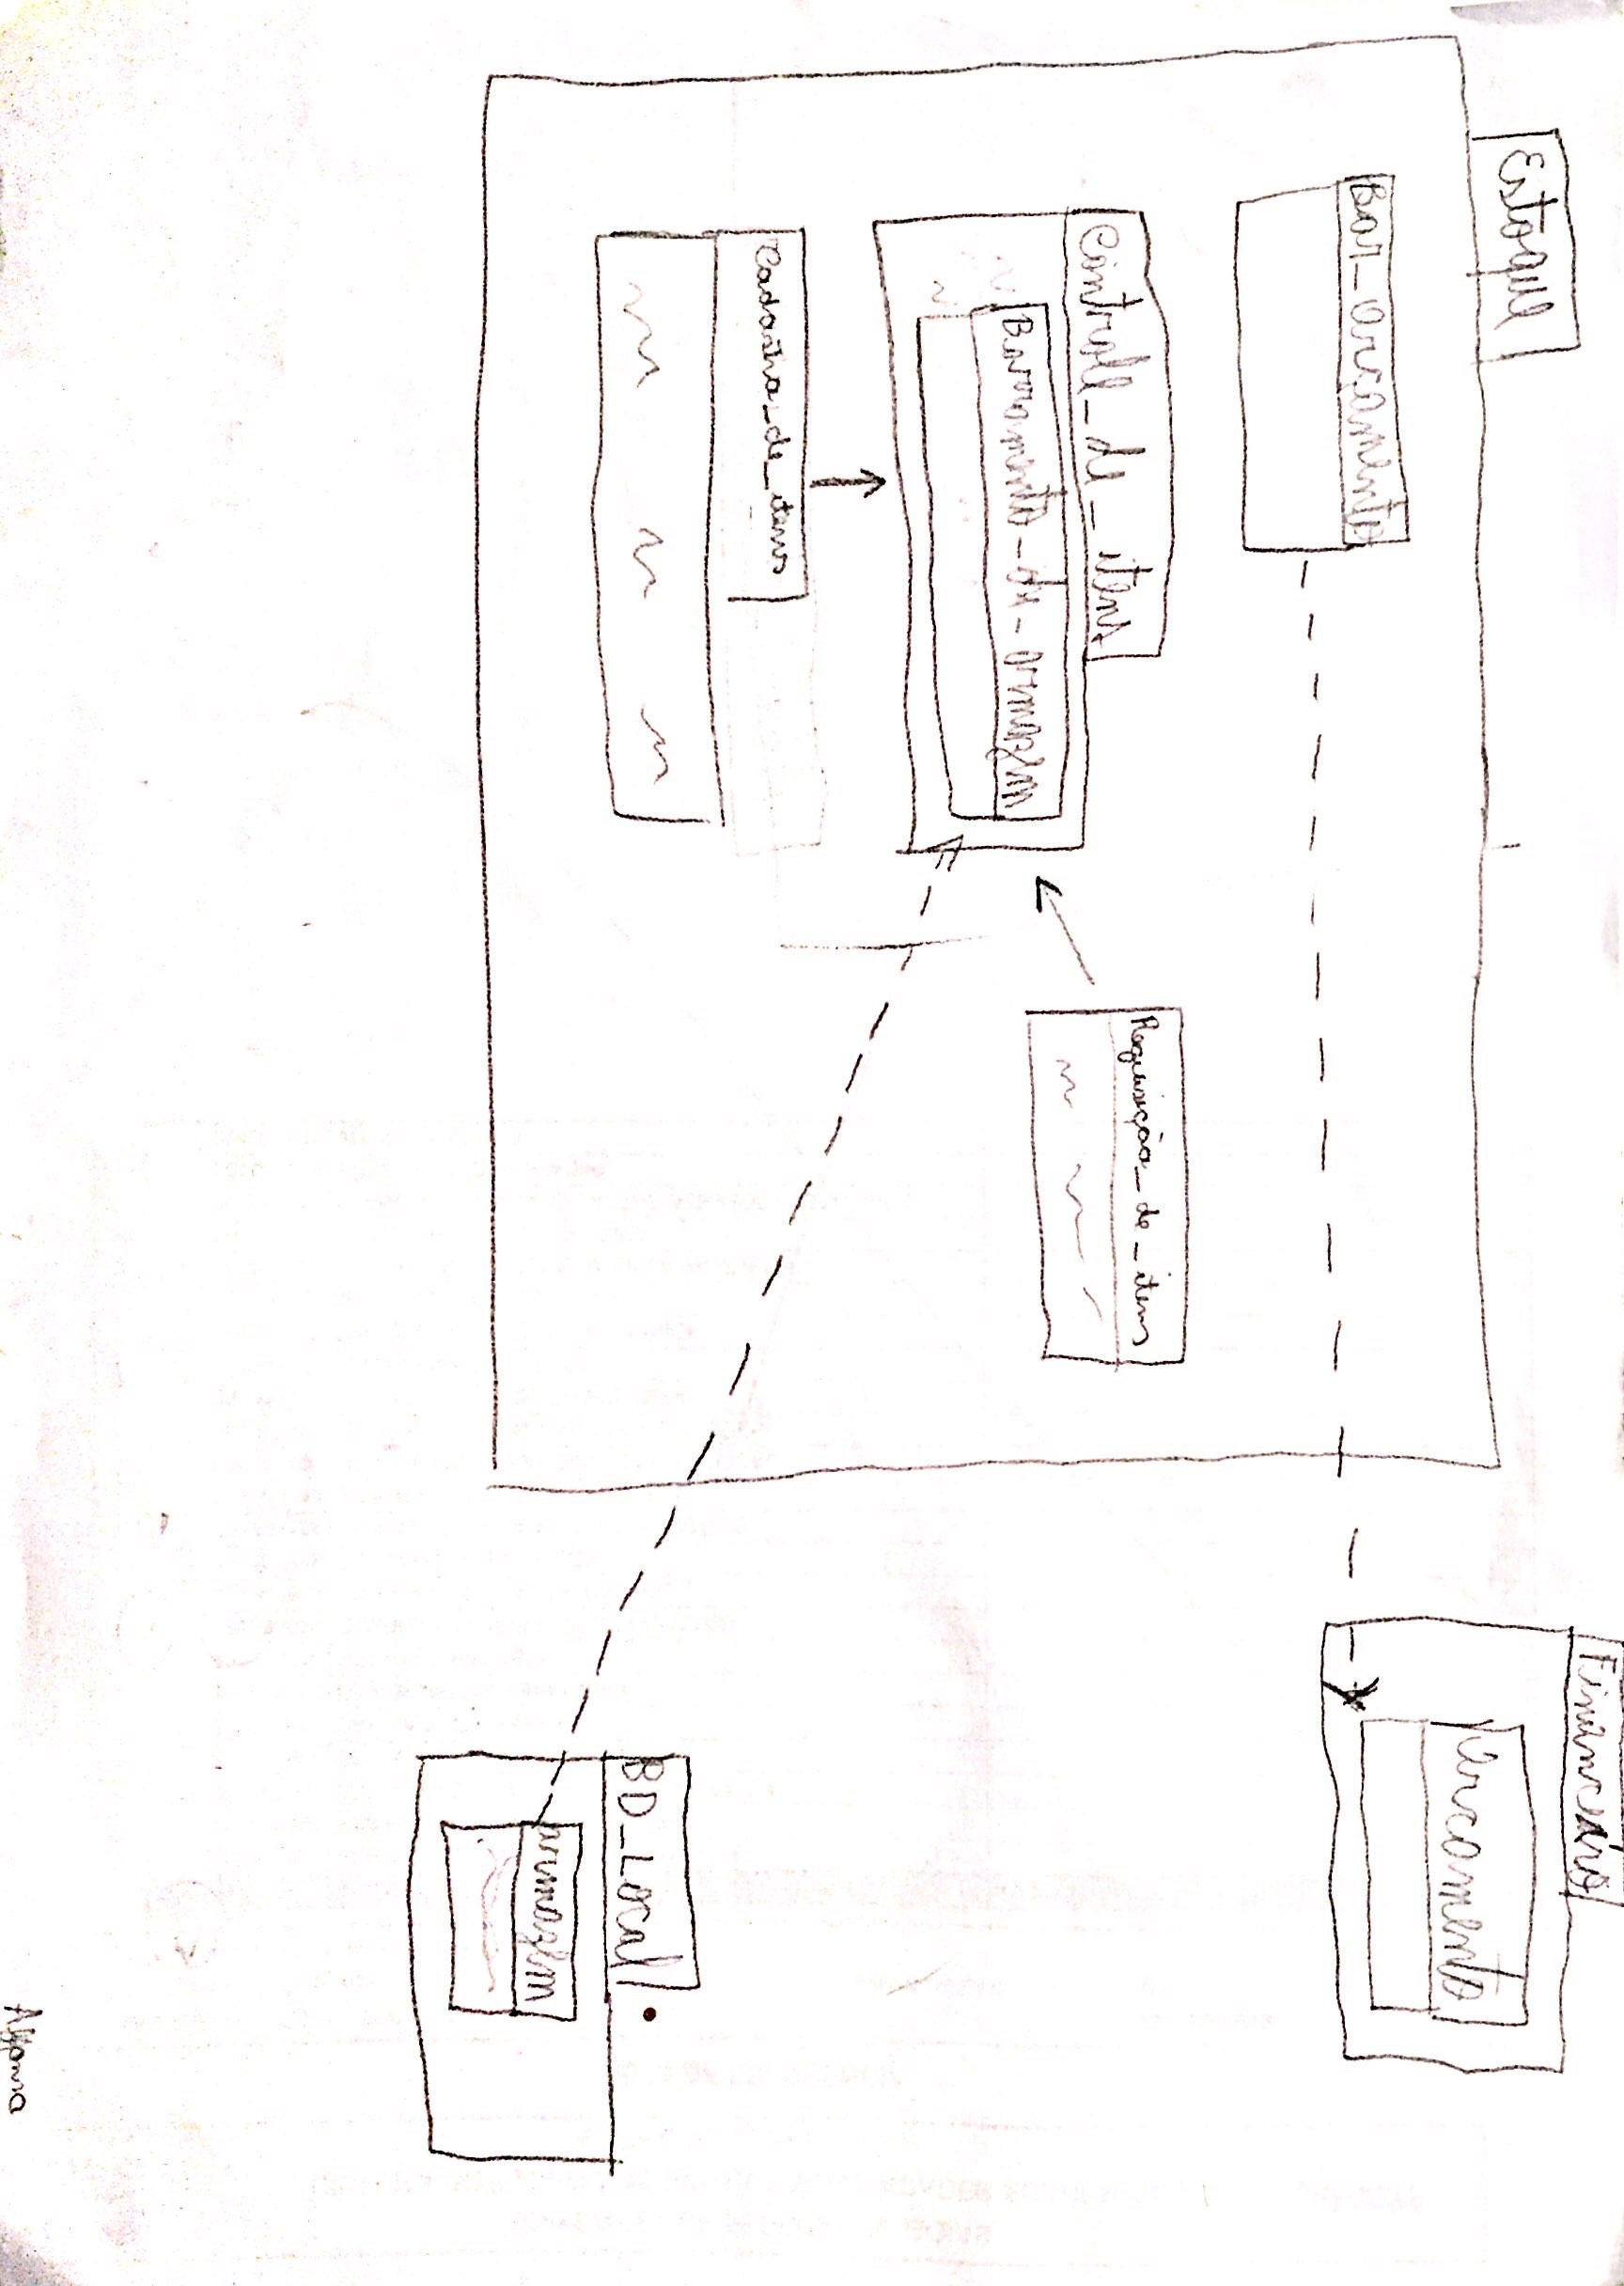 Estoque
Bar_orcamento
Controle_de_itens
Barramento_de_armazem
Cadastro_de_itens
Requisição_de_itens
Financeiro
Orcamento
BD_Local
armazem